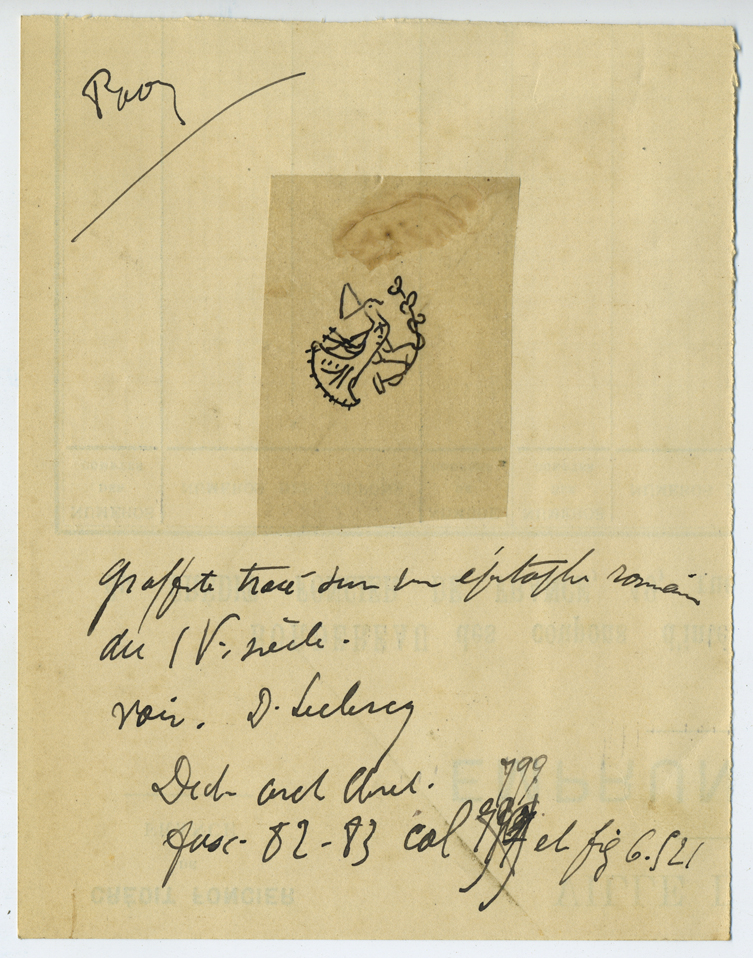 graffite tracé sur un épitaphe romain
du IVe siècle.
voir. D. Leclercq
Dict arch chret.
799
fasc. 82-83 col et fig 6.521
CREDIT FONCIER